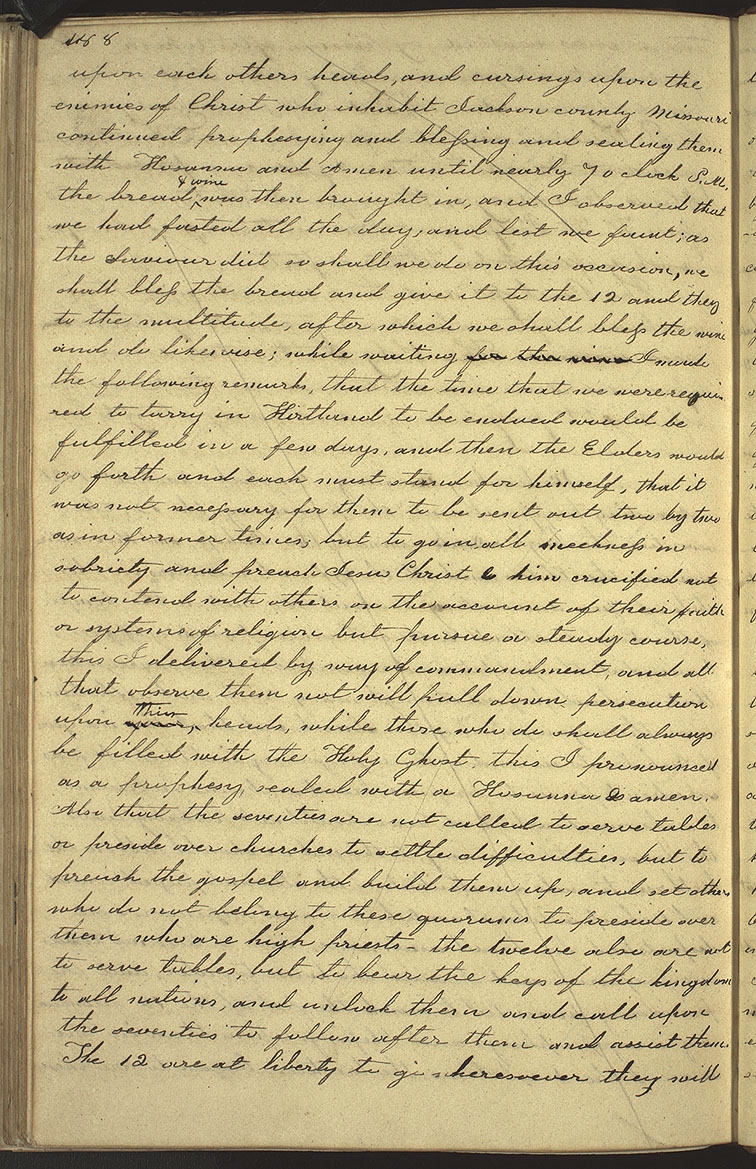 188
upon each others heads, and cursings upon the
enimies of Christ who inhabit Jackson county Missouri
continued prophesying and blessing and sealing them
with Hosanna and Amen until nearly 7 o clock P.M.
the bread & wine was then brought in, and I observed that
we had fasted all the day, and lest we faint; as
the Saviour did so shall we do on this occasion, we
shall bless the bread and give it to the 12 and they
to the multitude, after which we shall bless the wine
and do likewise; while waiting for the wine I made
the following remarks, that the time that we were requi
red to tarry in Kirtland to be endued would be
fulfilled in a few days, and then the Elders would
go forth and each must stand for himself, that it
was not necessary for them to be sent out two by two
as in former times; but to go in all meekness in
sobriety and preach Jesus Christ & him crucified not
to contend with others on the account of their faith
or systems of religion but pursue a steady course,
this I delivered by way of commandment, and all
that observe them not will pull down persecution
upon their heads, while those who do shall always
be filled with the Holy Ghost, this I pronounced
as a prophesy, sealed with a Hosanna & amen.
Also that the seventies are not called to serve tables
or preside over churches to settle difficulties, but to
preach the gospel and build them up, and set others
who do not belong to these quorums to preside over
them who are high priests - the twelve also are not
to serve tables, but to bear the keys of the kingdom
to all nations, and unlock them and call upon
the seventies to follow after them and assist them.
The 12 are at liberty to go wheresoever they will